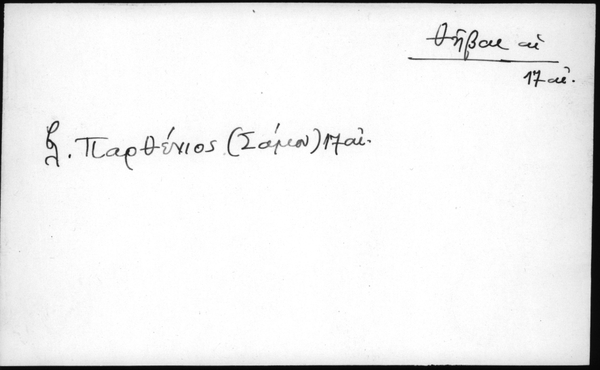 Θῆβαι αἱ
17 αἰ.
βλ. Παρθένιος (Σάμου) 17 αἰ.